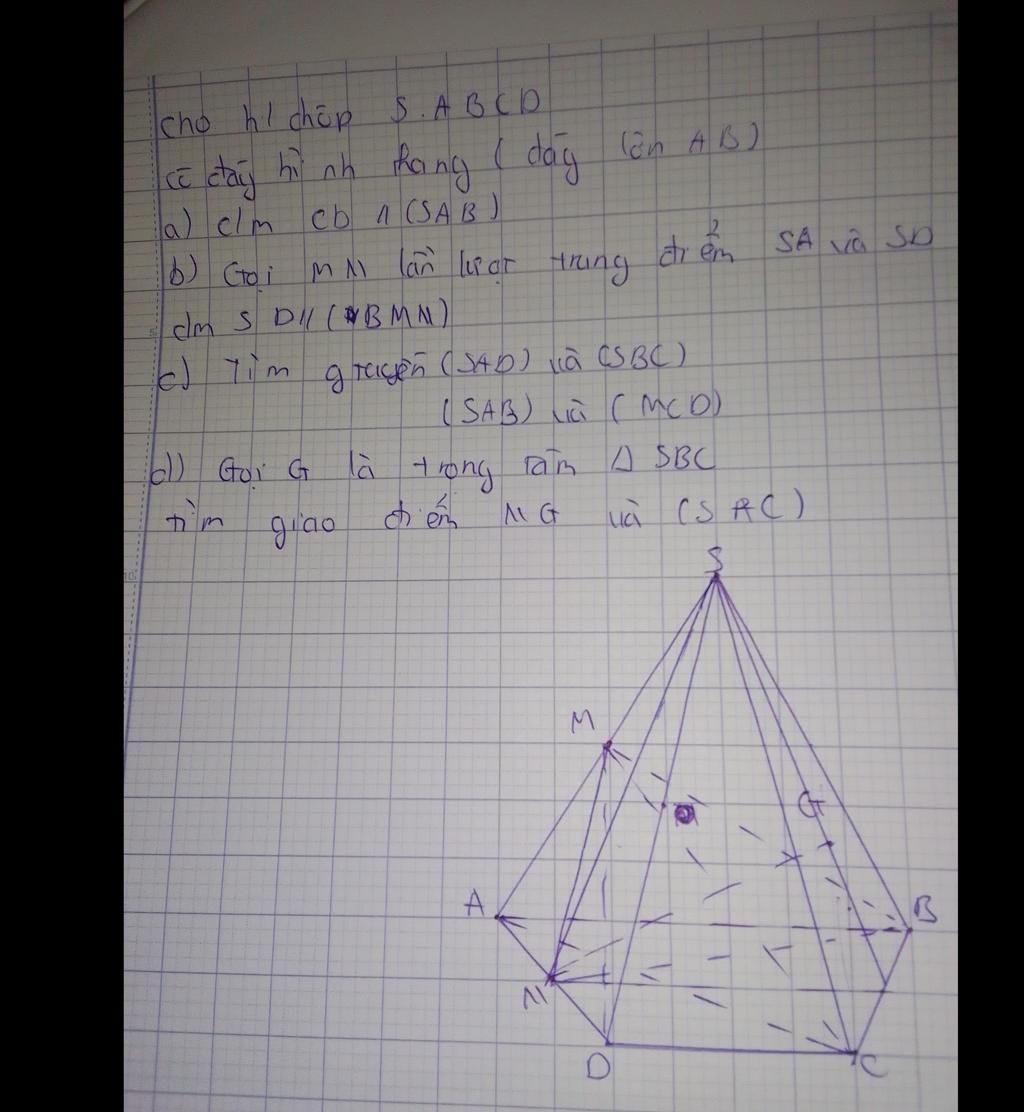 cho h/ chóp S.ABCD
có đáy hình thang (đáy lớn AB)
a) c/m CD // (SAB)
b) Gọi M N lần lượt trung điểm SA và SD
c/m SD // (BMN)
c) Tìm g tuyến (SAD) và (SBC)
(SAB) và (MCD)
d) Gọi G là trọng tâm Δ SBC
tìm giao điểm NG và (SAC)
S
M
G
A
B
N
D
C